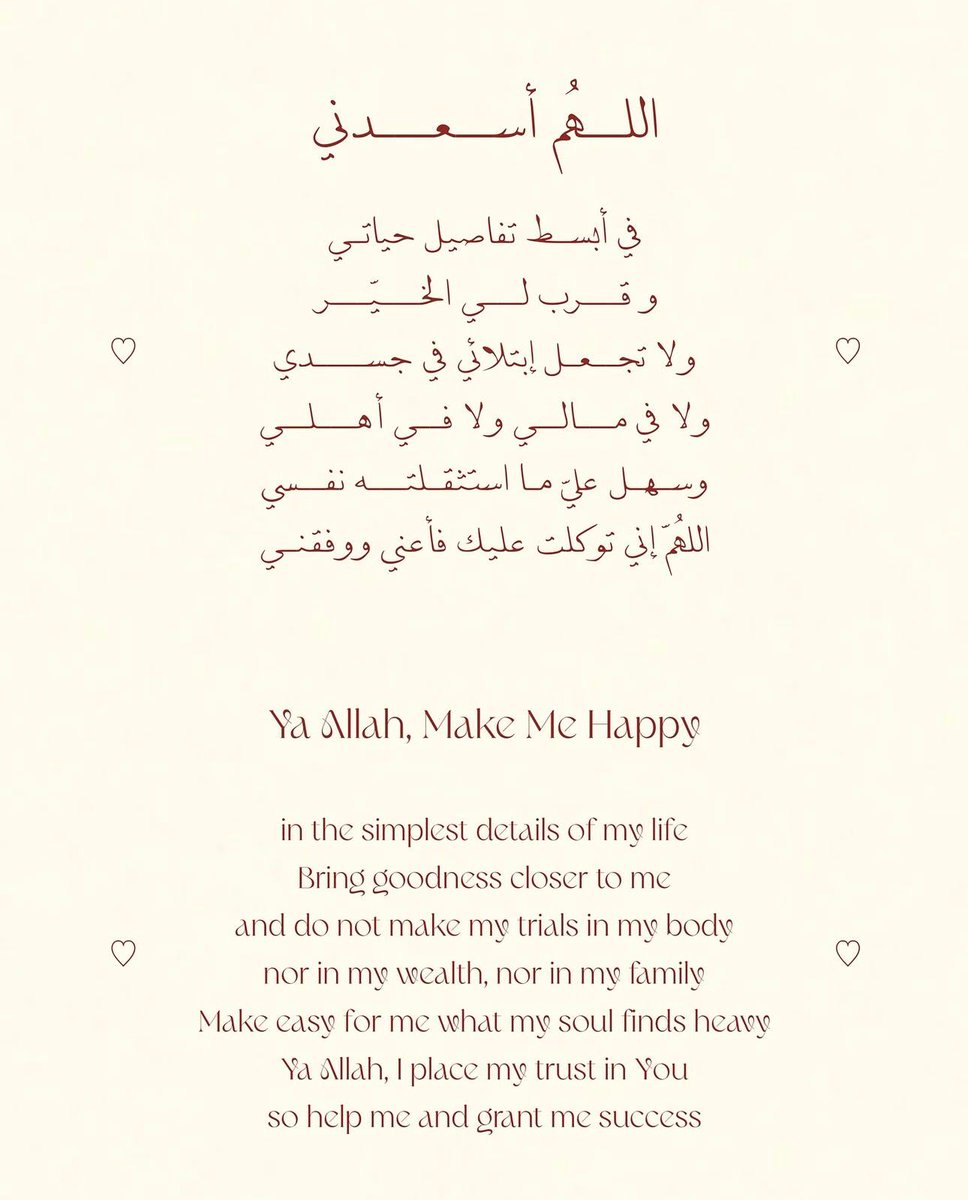 اللهُم أسعدني
في أبسط تفاصيل حياتي
و قرب لي الخيّر
ولا تجعل إبتلائي في جسدي
ولا في مالي ولا في أهلي
وسهل عليّ ما استثقلته نفسي
اللهُمّ إني توكلت عليك فأعني ووفقني
Ya Allah, Make Me Happy
in the simplest details of my life
Bring goodness closer to me
and do not make my trials in my body
nor in my wealth, nor in my family
Make easy for me what my soul finds heavy
Ya Allah, I place my trust in You
so help me and grant me success